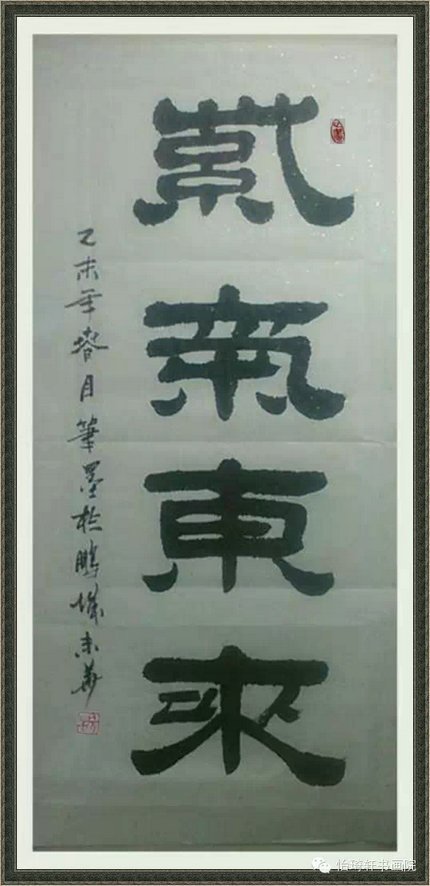 紫氣東來
乙未年春月筆墨於鵬城
怡琦轩书画院